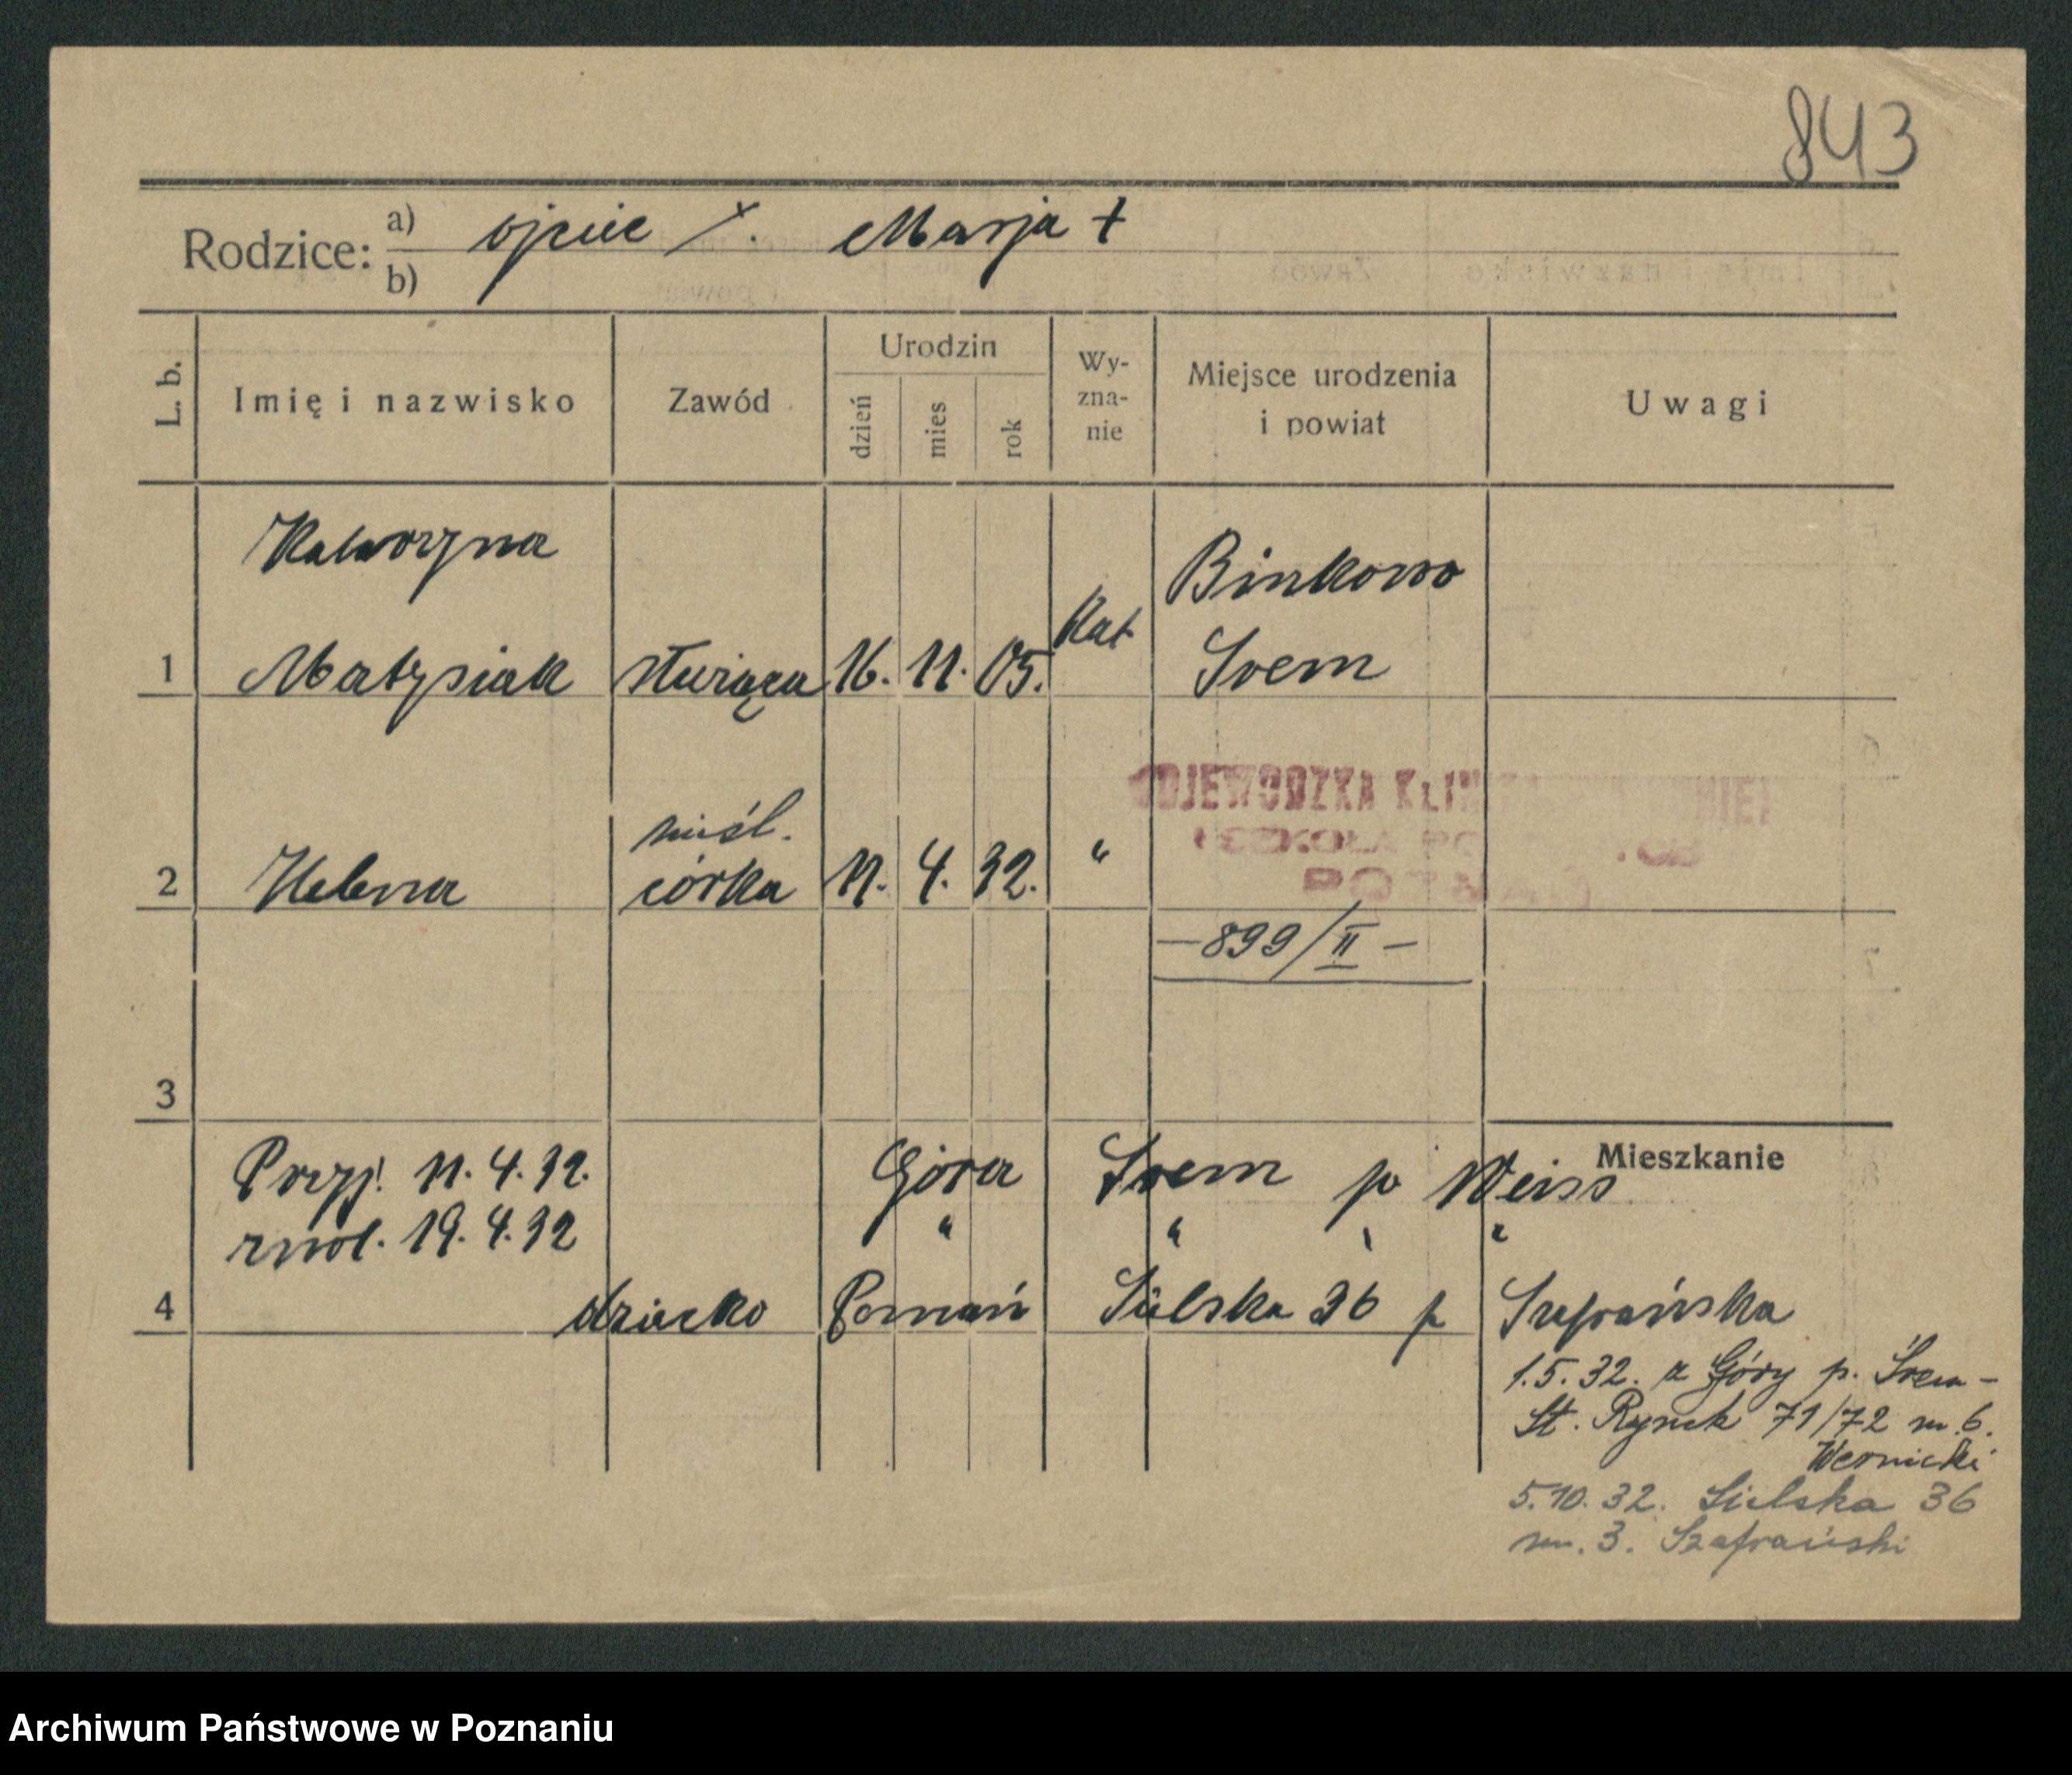 843
Rodzice: a) ojciec /. Marja +
b)
L. b. Imię i nazwisko Zawód Urodzin dzień mies rok Wy-zna-nie Miejsce urodzenia i powiat Uwagi
Katarzyna Binkowo
1 Matysiak służąca 16. 11. 05. Kat Śrem
nieśl.
2 Helena córka 11. 4. 32. "
WOJEWODZKA KLIN
POZNAŃ
—899/II—
3
Mieszkanie
Przyj. 11.4.32. Góra Śrem p Weiss
zwol. 19.4.32 " " " "
4 dziecko Poznań Sielska 36 p Szafrańska
1.5.32. z Góry p. Śrem -
St. Rynek 71/72 m.6.
Wernicki
5.10.32. Sielska 36
m. 3. Szafrański
Archiwum Państwowe w Poznaniu